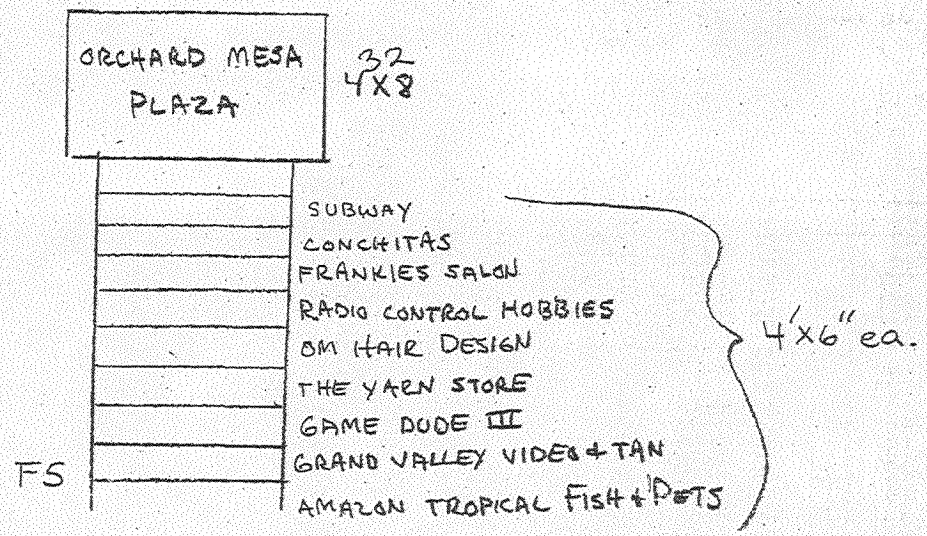 ORCHARD MESA
PLAZA
32
4X8
SUBWAY
CONCHITAS
FRANKIES SALON
RADIO CONTROL HOBBIES
OM HAIR DESIGN
THE YARN STORE
GAME DUDE III
GRAND VALLEY VIDEO & TAN
AMAZON TROPICAL FISH & PETS
4'X6" ea.
FS